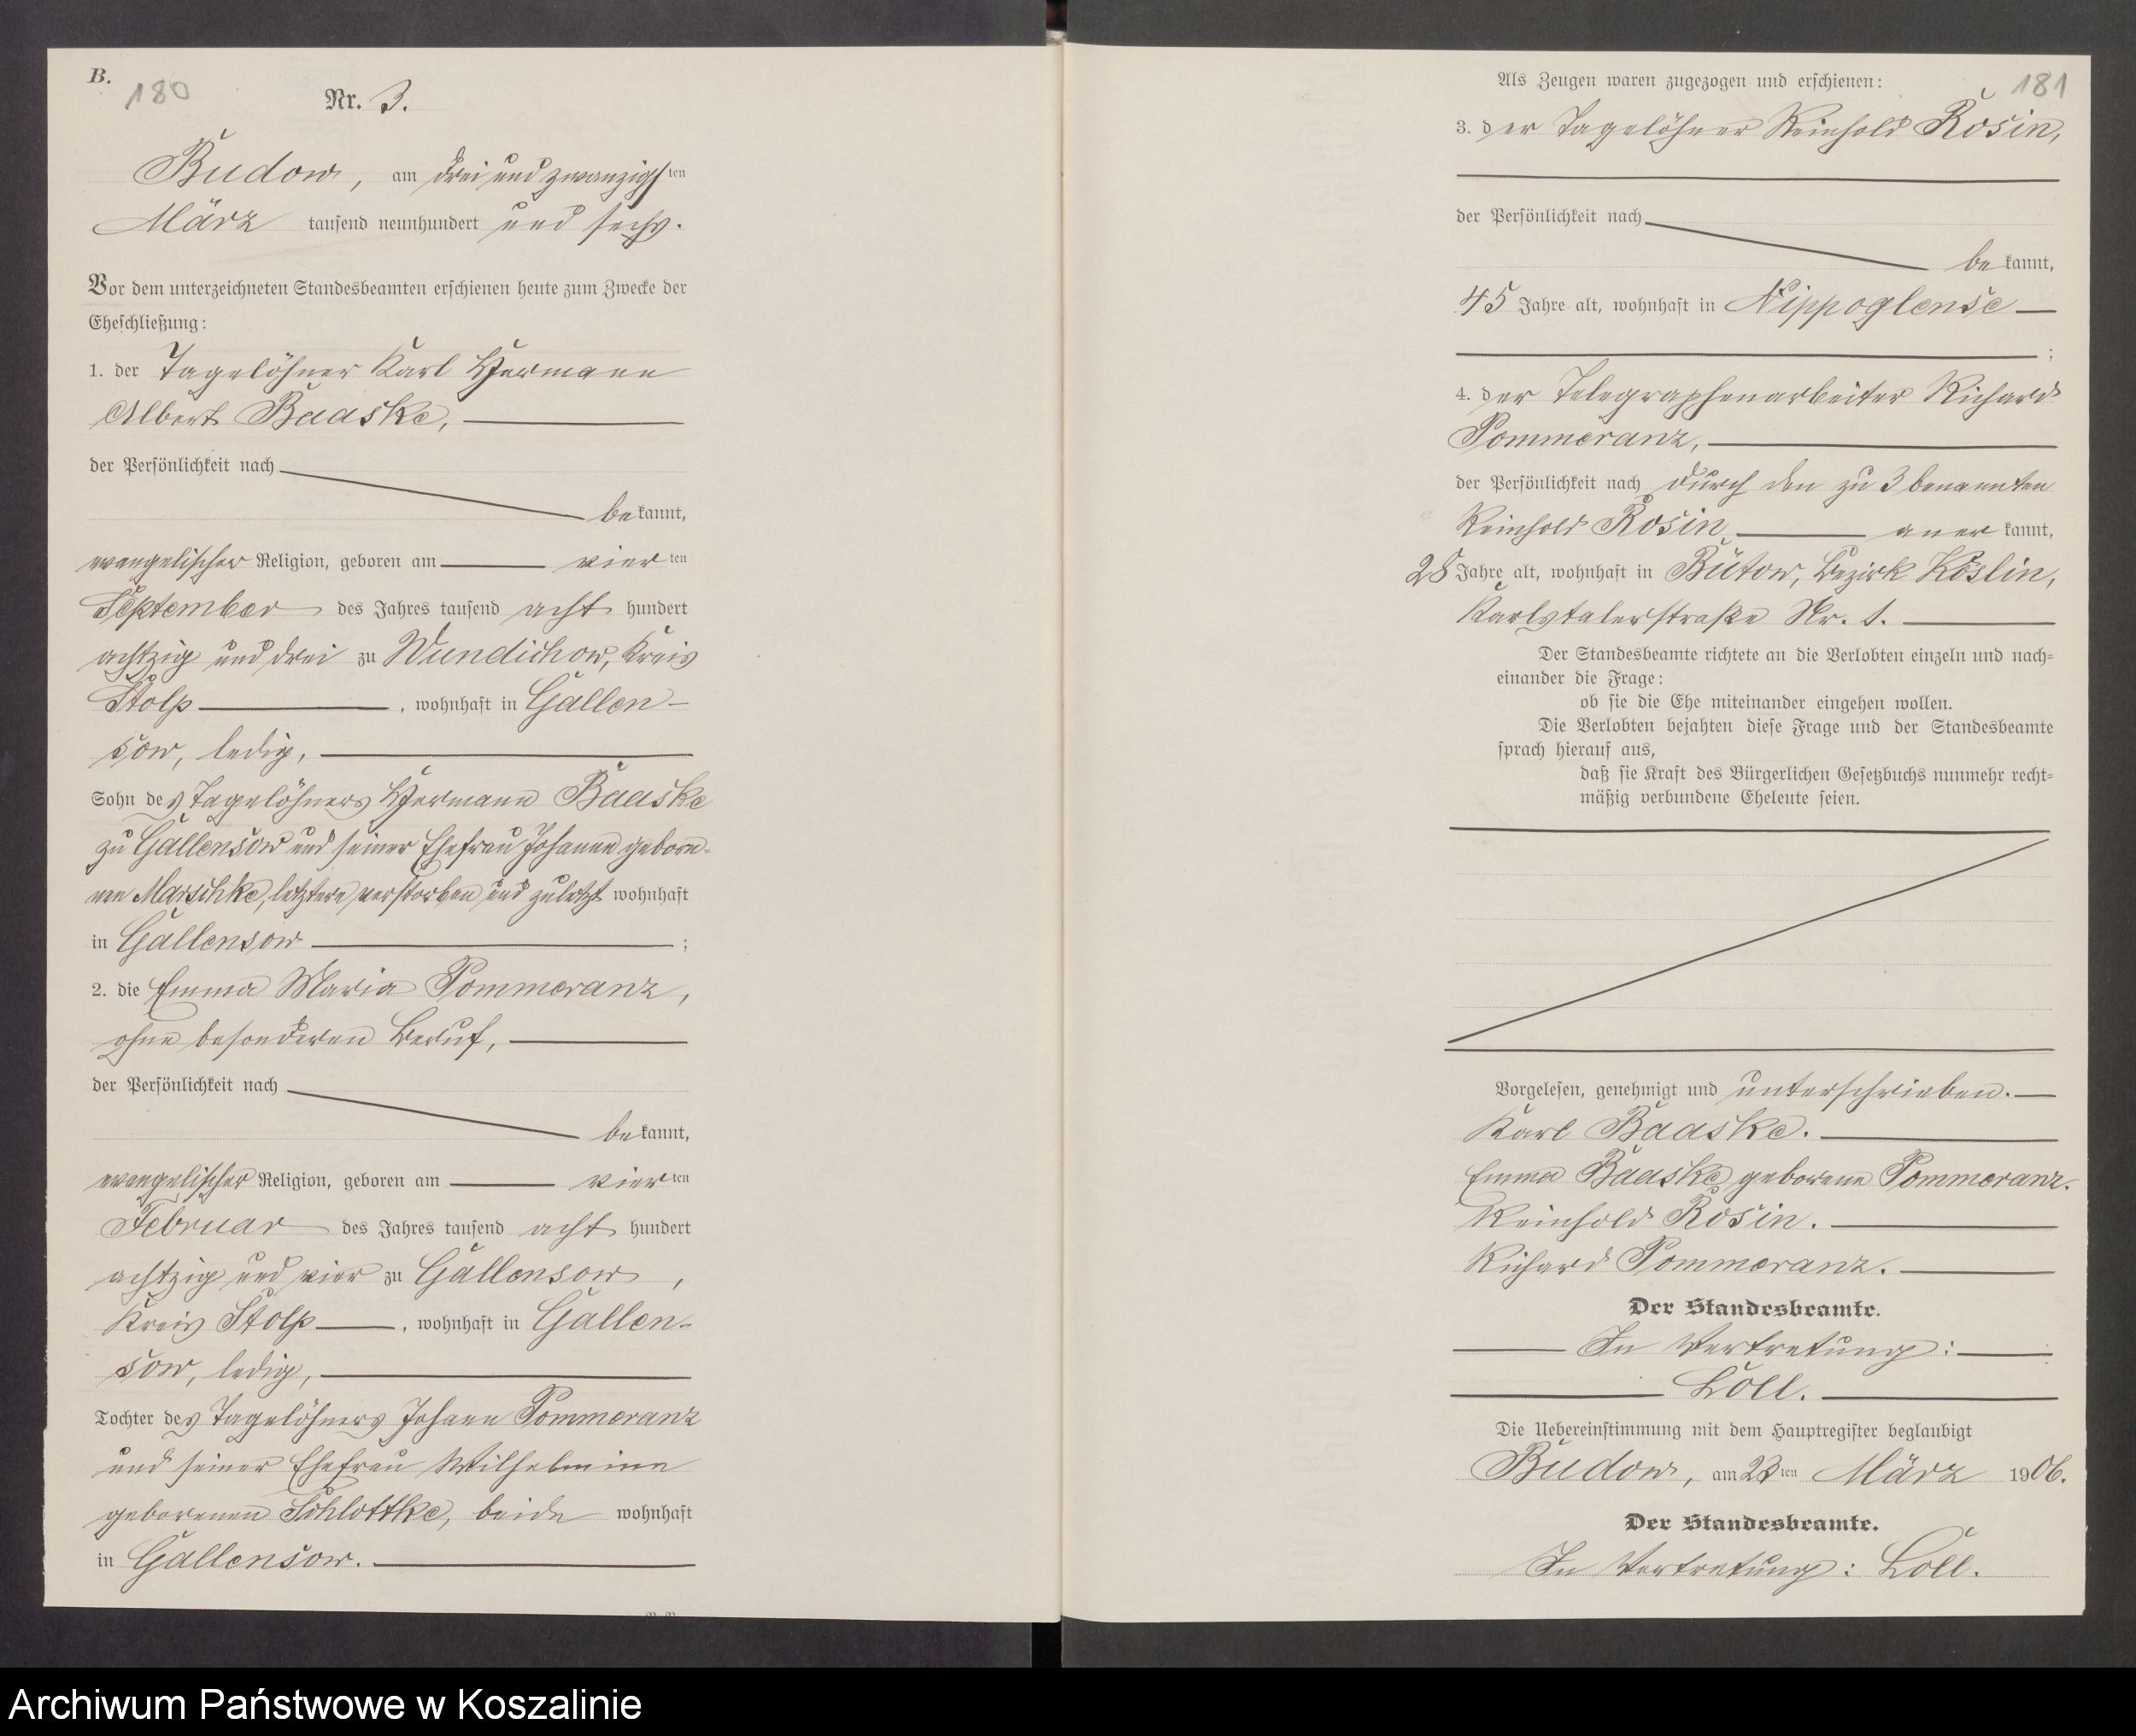 B.
180
Nr. 3.
Budow, am drei und zwanzigsten
März tausend neunhundert und sechs.
Vor dem unterzeichneten Standesbeamten erschienen heute zum Zwecke der
Eheschließung:
1. der Tagelöhner Karl Hermann
Albert Baaske,
der Persönlichkeit nach
bekannt,
evangelischer Religion, geboren am vierten
September des Jahres tausend acht hundert
achtzig und drei zu Wundichow, Kreis
Stolp, wohnhaft in Gallen-
sow, ledig,
Sohn des Tagelöhners Hermann Baaske
zu Gallensow und seiner Ehefrau Johanne gebore-
nen Marschke, letztere verstorben und zuletzt wohnhaft
in Gallensow ;
2. die Emma Maria Pommeranz,
ohne besonderen Beruf,
der Persönlichkeit nach
bekannt,
evangelischer Religion, geboren am vierten
Februar des Jahres tausend acht hundert
achtzig und vier zu Gallensow,
Kreis Stolp, wohnhaft in Gallen-
sow, ledig,
Tochter des Tagelöhners Johann Pommeranz
und seiner Ehefrau Wilhelmine
geborenen Schlottke, beide wohnhaft
in Gallensow.
181
Als Zeugen waren zugezogen und erschienen:
3. der Tagelöhner Reinhold Rosin,
der Persönlichkeit nach
bekannt,
45 Jahre alt, wohnhaft in Nippoglense
;
4. der Telegraphenarbeiter Richard
Pommeranz,
der Persönlichkeit nach durch den zu 3 benannten
Reinhold Rosin anerkannt,
28 Jahre alt, wohnhaft in Bütow, Bezirk Köslin,
Karlstalerstraße Nr. 1.
Der Standesbeamte richtete an die Verlobten einzeln und nach-
einander die Frage:
ob sie die Ehe miteinander eingehen wollen.
Die Verlobten bejahten diese Frage und der Standesbeamte
sprach hierauf aus,
daß sie Kraft des Bürgerlichen Gesetzbuchs nunmehr recht-
mäßig verbundene Eheleute seien.
Vorgelesen, genehmigt und unterschrieben.
Karl Baaske.
Emma Baaske geborene Pommeranz.
Reinhold Rosin.
Richard Pommeranz.
Der Standesbeamte.
In Vertretung:
Loll.
Die Uebereinstimmung mit dem Hauptregister beglaubigt
Budow, am 23ten März 1906.
Der Standesbeamte.
In Vertretung: Loll.
Archiwum Państwowe w Koszalinie